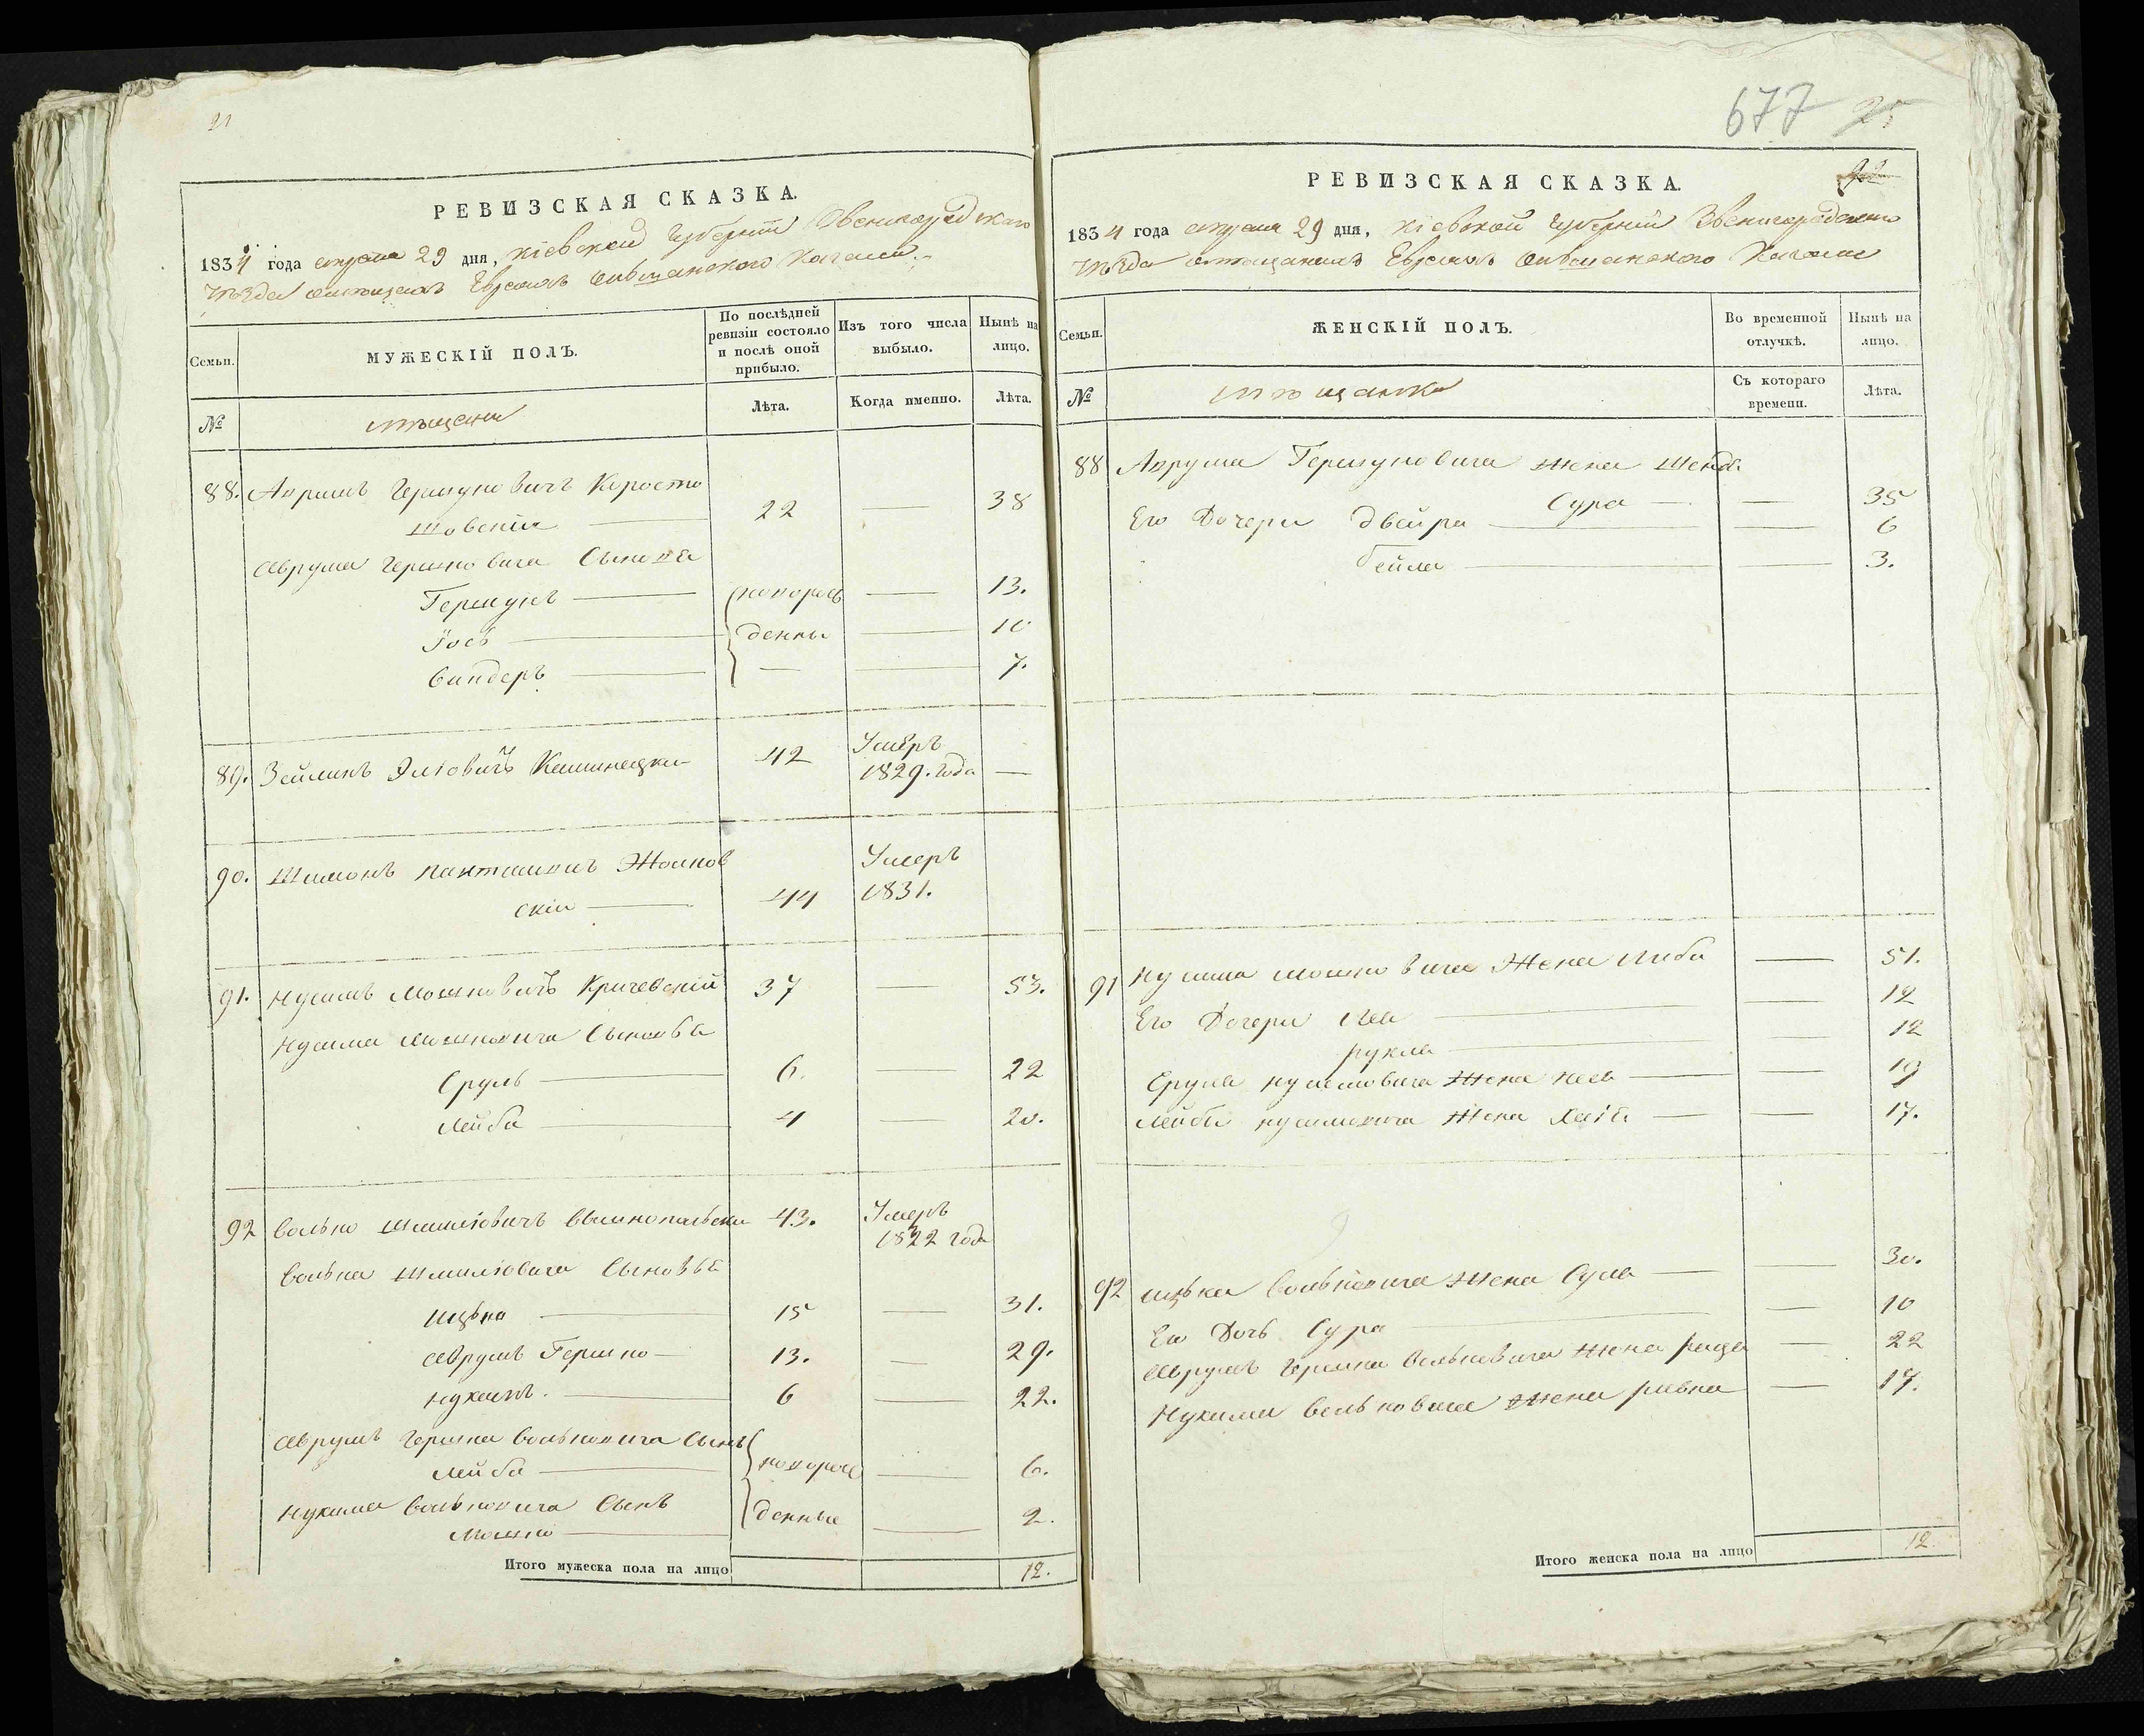 21
РЕВИЗСКАЯ СКАЗКА.
1834 года апреля 29 дня, Кіевской Губерніи Звенигородскаго
уѣзда о мѣщанахъ Евреяхъ Кагала.
Семьи.
МУЖЕСКІЙ ПОЛЪ.
По послѣдней ревизіи состояло и послѣ оной прибыло.
Изъ того числа выбыло.
Нынѣ на лицо.
№
мѣщане
Лѣта.
Когда именно.
Лѣта.
88. Аврумъ Гершуновичъ Коросты
шовскій 22 — 38
Аврума Гершковича Сыновья
Гершунъ — новорож — 13.
Іось — денны — 10
Сендеръ — — — 7.
89. Зейликъ Эліовичъ 42 Умеръ
1829. года —
90. Шимонъ Умеръ
скій — 44 1831.
91. Нусимъ Мошковичъ Кричевскій 37 — 53.
Нусима Мошковича Сыновья
Сруль — 6. — 22
Лейба — 4 — 20.
92 Волько Шмилювичъ 43. Умеръ
1822 года
Волька Шмилювича Сыновья
Ицько — 15 — 31.
Аврумъ Гершко — 13. — 29.
Нухимъ. — 6 — 22.
Аврумъ Гершка Вольковича Сынъ
Лейба — новорож — 6.
Нухима Вольковича Сынъ денные — 2.
Мошко —
Итого мужеска пола на лицо 12.
677 25
РЕВИЗСКАЯ СКАЗКА.
1834 года апреля 29 дня, Кіевской Губерніи Звенигородскаго
уѣзда о мѣщанахъ Евреяхъ Кагала
Семьи.
ЖЕНСКІЙ ПОЛЪ.
Во временной отлучкѣ.
Нынѣ на лицо.
№
мѣщанки
Съ котораго времени.
Лѣта.
88 Аврума Гершуновича жена Шендя
Сура — — 35
Его Дочери Двейра — — 6
Бейла — — 3.
91 Нусима Мошковича Жена Либа — 51.
Его Дочери Леа — — 12
Рухля — — 12
Сруля Нусимовича Жена Хая — — 19
Лейбы Нусимовича Жена Хаія — — 17.
92 Ицька Вольковича Жена Сула — — 30.
Его Дочь Сура — — 10
Аврумъ Гершка Вольковича Жена — 22
Нухима Вольковича Жена Ривка — 17.
Итого женска пола на лицо 12.